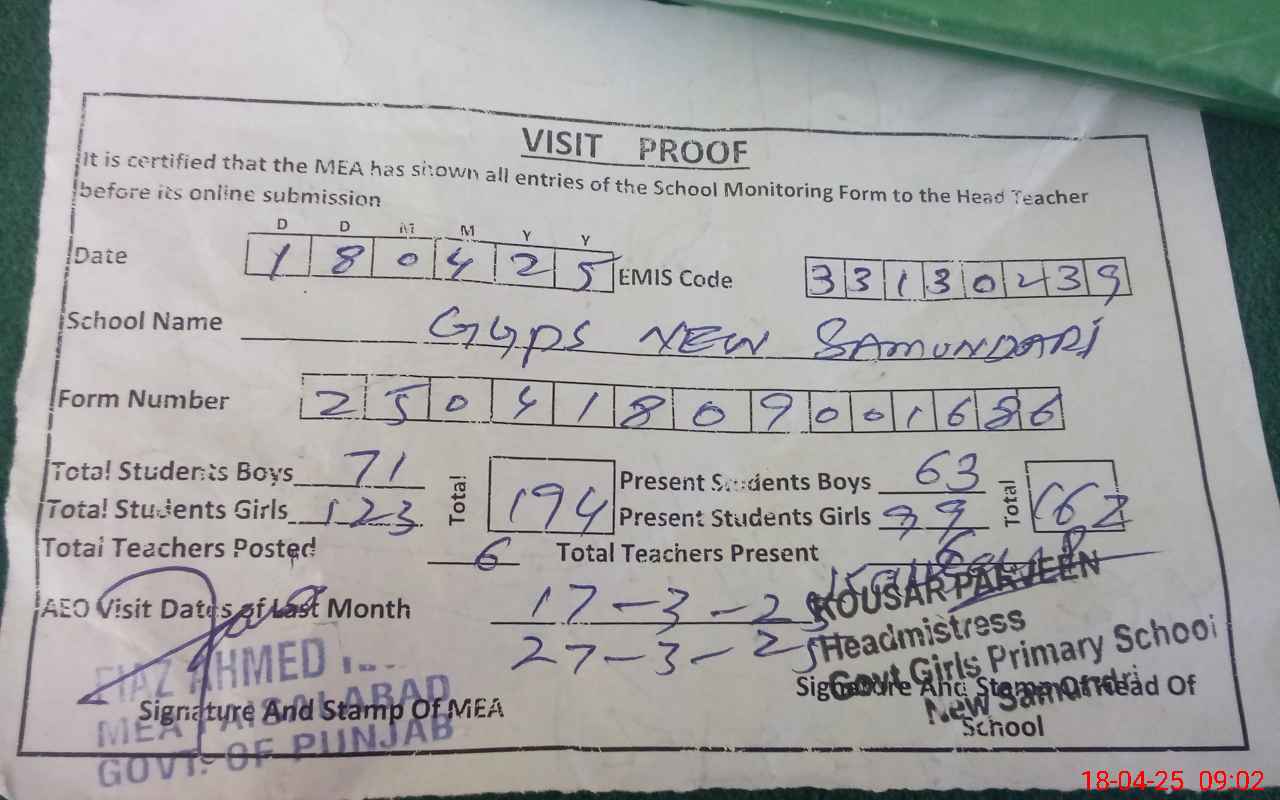 VISIT PROOF
It is certified that the MEA has shown all entries of the School Monitoring Form to the Head Teacher
before its online submission
D D M M Y Y
Date 1 8 0 4 2 5 EMIS Code 3 3 1 3 0 2 3 9
School Name GGPS NEW SAMUNDARI
Form Number 2 5 0 4 1 8 0 9 0 0 1 6 8 6
Total Students Boys 71 Total 194 Present Students Boys 63 Total 162
Total Students Girls 123 Present Students Girls 99
Total Teachers Posted 6 Total Teachers Present 6
AEO Visit Dates of Last Month 17-3-25
27-3-25
KOUSAR PARVEEN
Headmistress
Govt Girls Primary School
New Samundri
FIAZ AHMED
MEA FAISALABAD
GOVT. OF PUNJAB
Signature And Stamp Of MEA
Signature And Stamp Of Head Of
School
18-04-25 09:02